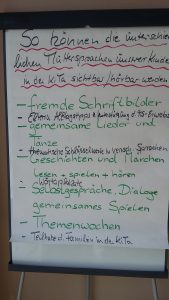 So können die unterschied-
lichen Muttersprachen unserer Kinder
in der KiTa sichtbar/hörbar werden
- fremde Schriftbilder
- Eltern
- gemeinsame Lieder und
Tänze
- thematische in versch. Sprachen
- Geschichten und Märchen
lesen + spielen + hören
- Wortplakate
- Selbstgespräche, Dialoge
gemeinsames Spielen
- Themenwochen
- Teilhabe d. Familien in der KiTa